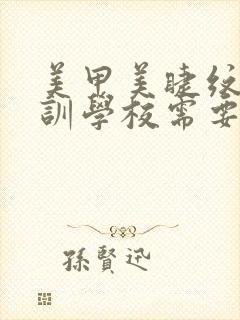 美甲美睫紋
訓學校需要
孫賢迅